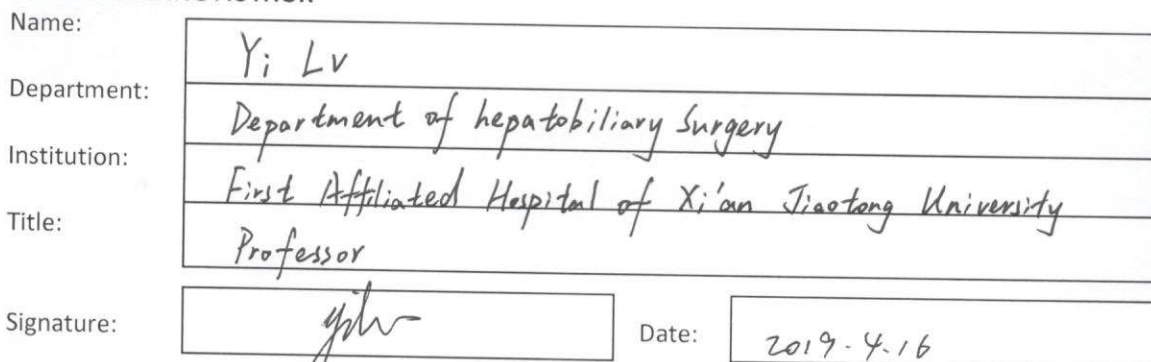 Name: Yi Lv
Department: Department of hepatobiliary Surgery
Institution: First Affiliated Hospital of Xi'an Jiaotong University
Title: Professor
Signature: yilv Date: 2019.4.16